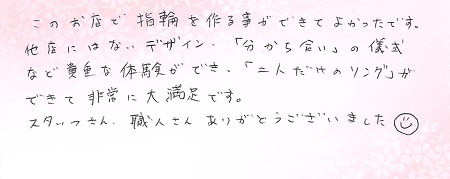 このお店で指輪を作る事ができてよかったです。
他店にはないデザイン、「分かち合い」の儀式
など貴重な体験ができ、「二人だけのリング」が
できて非常に大満足です。
スタッフさん、職人さんありがとうございました☺